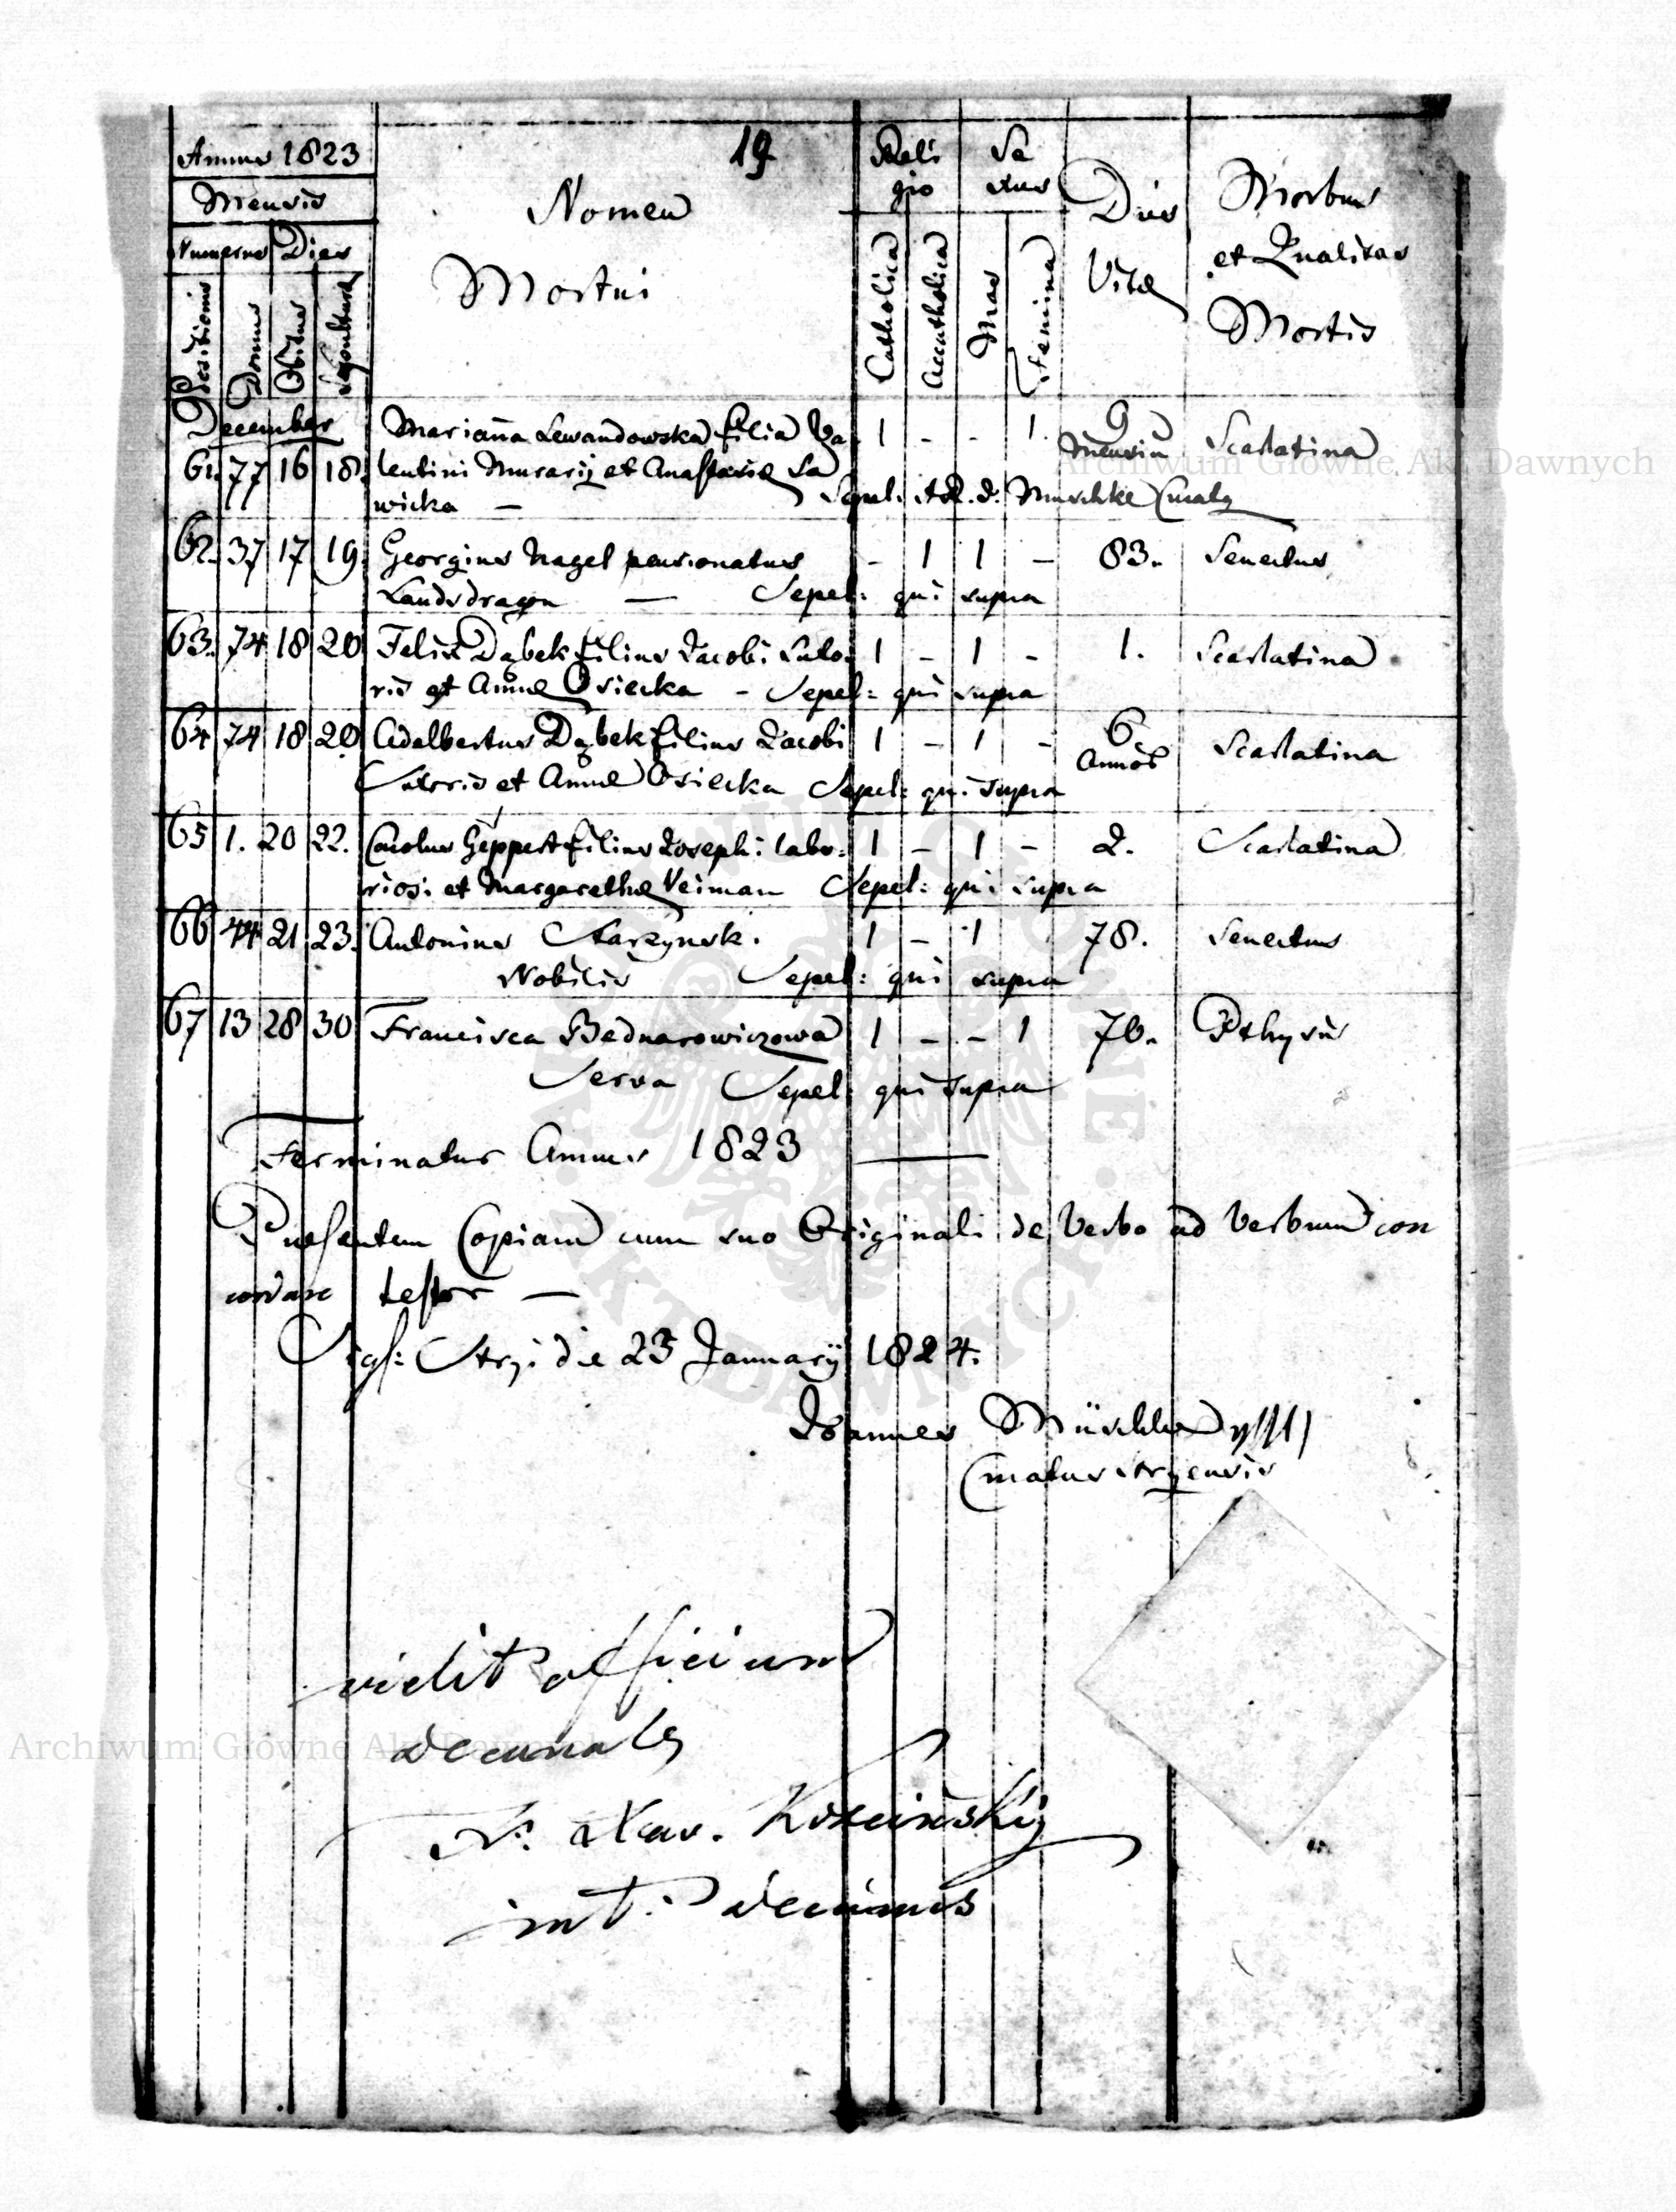 Annus 1823
19
Reli
gio
Se
xus
Mensis
Nomen
Mortui
Dies
Vitæ
Morbus
et Qualitas
Mortis
Numerus
Dies
Positionis
Domus
Obitus
Sepulturæ
Catholica
Accatholica
Mas
Femina
December
Marianna Lewandowska filia Va
1 - - 1.
9
Mensiu
Scarlatina
61. 77 16 18. lentini Murarij et Anastasiæ Sa
wicka — Sepel: Ad. R. d. Muschke
62. 37 17 19. Georgius Nagel pensionatus - 1 1 - 83. Senectus
Landsdragon — Sepel: qui supra
63. 74 18 20 Felix Dąbek filius Jacobi Suto- 1 - 1 - 1. Scarlatina
ris et Annæ Osiecka - Sepel: qui supra
64 74 18 20 Adalbertus Dąbek filius Jacobi 1 - 1 - 6 Annos Scarlatina
Sutoris et Annæ Osiecka Sepel: qui supra
65 1. 20 22. Carolus Geppert filius Josephi labo- 1 - 1 - 2. Scarlatina
riosi et Margarethæ Veiman Sepel: qui supra
66 44 21 23. Antonius Starzynski 1 - 1 78. Senectus
Nobilis Sepel: qui supra
67 13 28 30 Francisca Bednarowiczowa 1 - - 1 70. Pthysis
Serva Sepel: qui supra
Terminatur Annus 1823
Præsentem Copiam cum suo Originali de Verbo ad Verbum con
cordare testor —
Sigl: Stryi die 23 Januarij 1824.
Joannes Müschke
Curatus stryensis
vidit officium
decanale
Fr. Xav. Krzciński
int. decanus
Archiwum Główne Akt Dawnych
Archiwum Główne Akt Dawnych